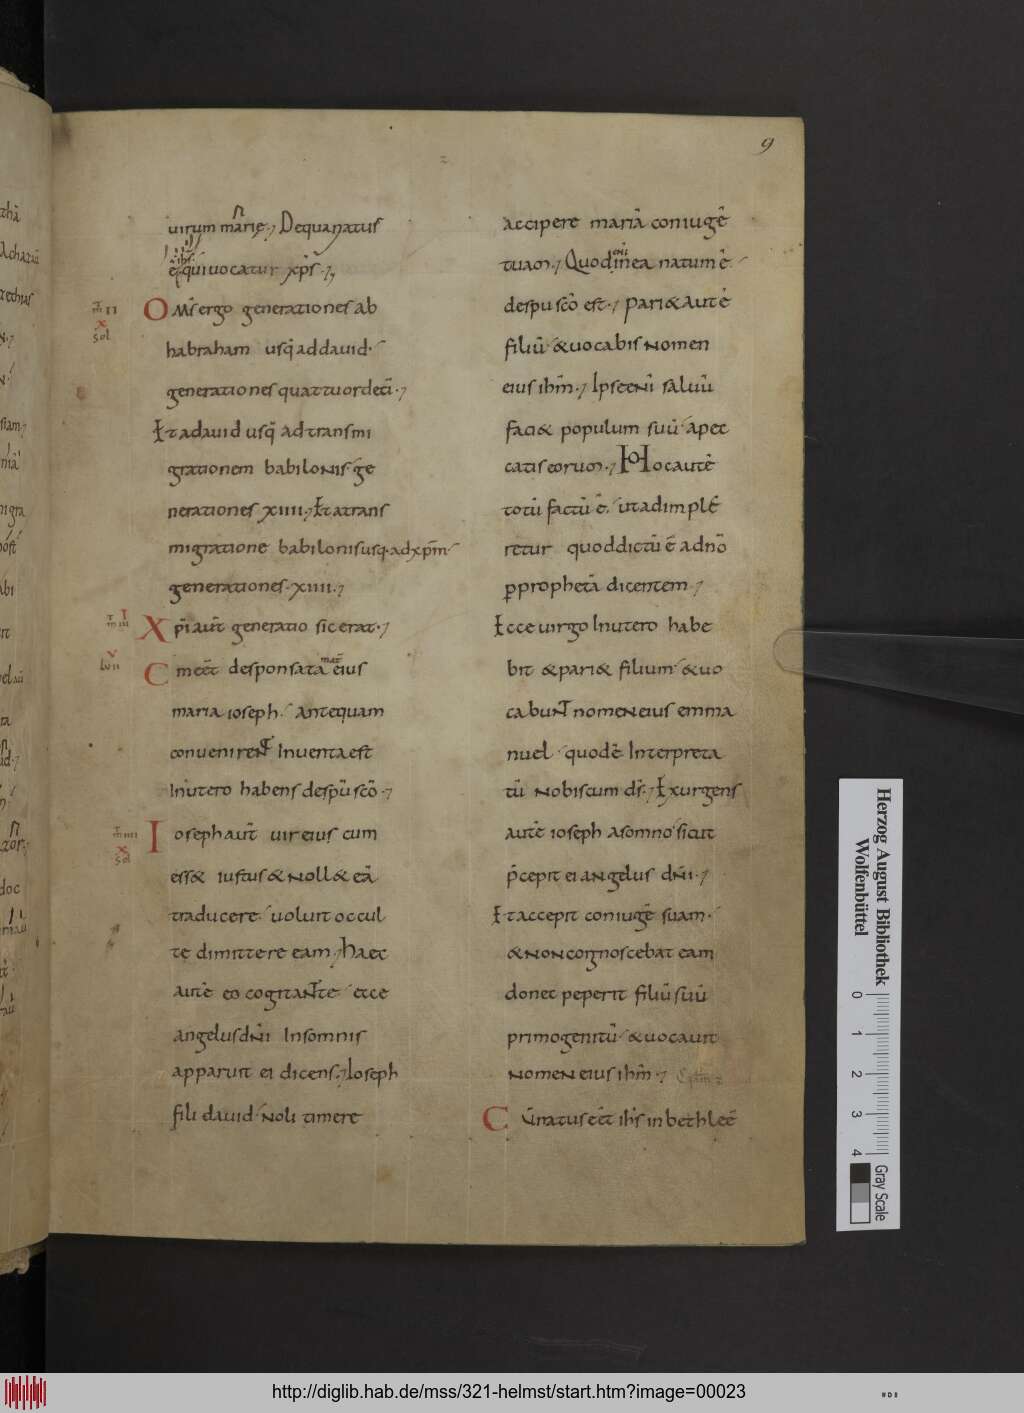 9
uirum marię·, De qua natus
ihs
ē qui uocatur xp̄s·,
Om̄s ergo generationes ab
habraham usq̄ ad dauid·
generationes quattuordecī·,
Et a dauid usq̄ ad transmi
grationem babilonis ge
nerationes xıııı·, Et a trans
migratione babilonis usq· ad xp̄m
generationes·xıııı·,
Xp̄i aut̄ generatio sic erat·,
Cm eēt desponsata mat̄ eius
maria ioseph· antequam
conuenirent Inuenta est
In utero habens de spū scō·,
Ioseph aut̄ uir eius cum
ess& iustus & noll& eā
traducere· uoluit occul
te dimittere eam·, haec
autē eo cogitante ecce
angelus dn̄i In somnis
apparuit ei dicens·, Ioseph
fili dauid noli timere
accipere mariā coniugē
tuam·, Quod enī in ea natum ē
de spu scō est·, pari& aut ē
filiū & uocabis nomen
eius ihm̄·, Ipse enī saluū
faci& populum suū a pec
catis eorum·, Hoc autē
totū factū ē· ut adimplē
retur quod dictū ē a dnō
ꝑ prophetā dicentem·,
Ecce uirgo In utero habe
bit & pari& filium & uo
cabunt nomen eius emma
nuel quod ē Interpreta
tū nobiscum ds̄·, Exurgens
autē ioseph a somno sicut
p̄cepit ei angelus dn̄i·,
Et accepit coniugē suam·
& non cognoscebat eam
donec peperit filiū suū
primogenitū & uocauit
nomen eius ihm̄·,
Cū natus eēt ihs̄ in bethleē
Herzog August Bibliothek
Wolfenbüttel
0 1 2 3 4
Gray Scale
http://diglib.hab.de/mss/321-helmst/start.htm?image=00023